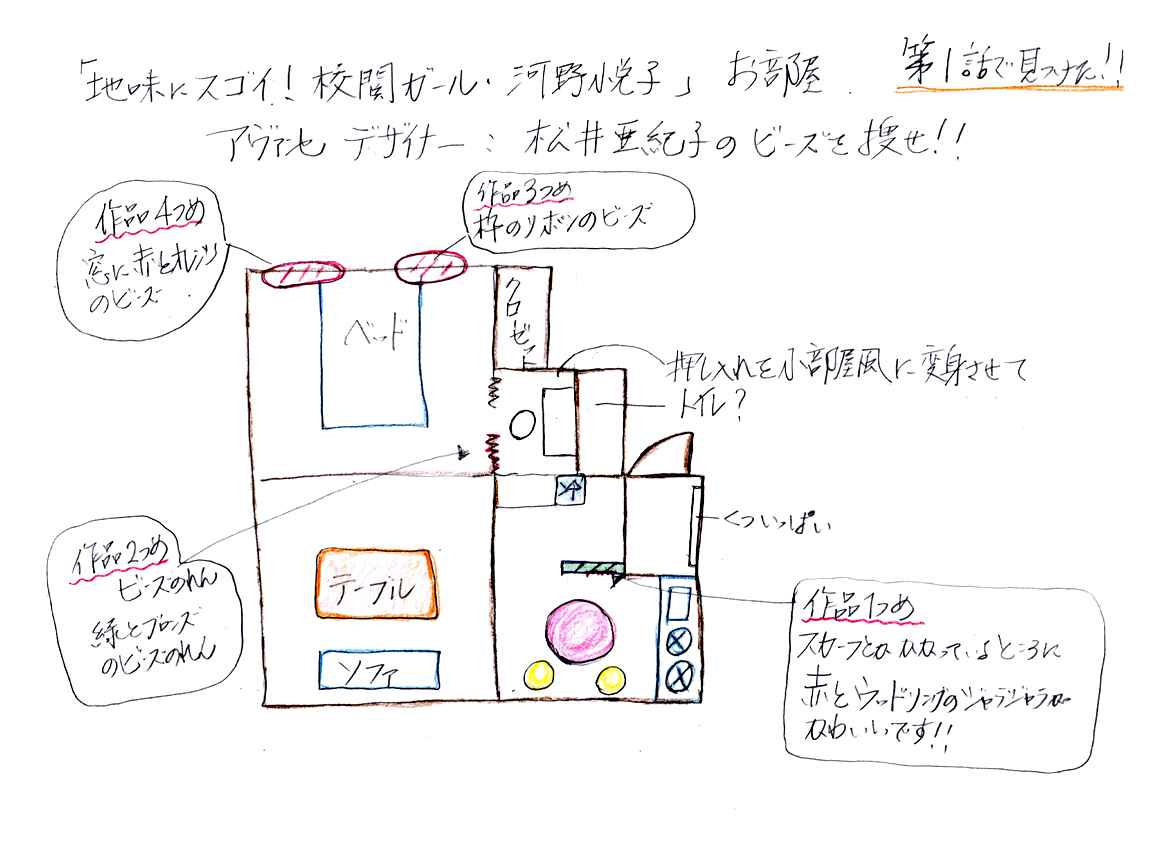 「地味にスゴイ！校閲ガール・河野悦子」お部屋
第1話で見つけた!!
アヴァンセ デザイナー：松井亜紀子のビーズを捜せ!!
作品4つめ
窓に赤とオレンジ
のビーズ
作品3つめ
枠のリボンのビーズ
クロゼット
ベッド
押し入れを小部屋風に変身させて
トイレ？
冷
くついっぱい
作品2つめ
ビーズのれん
緑とブロンズ
のビーズのれん
テーブル
ソファ
作品1つめ
スカーフとかかかっているところに
赤とウッドリングのジャラジャラが
かわいいです!!